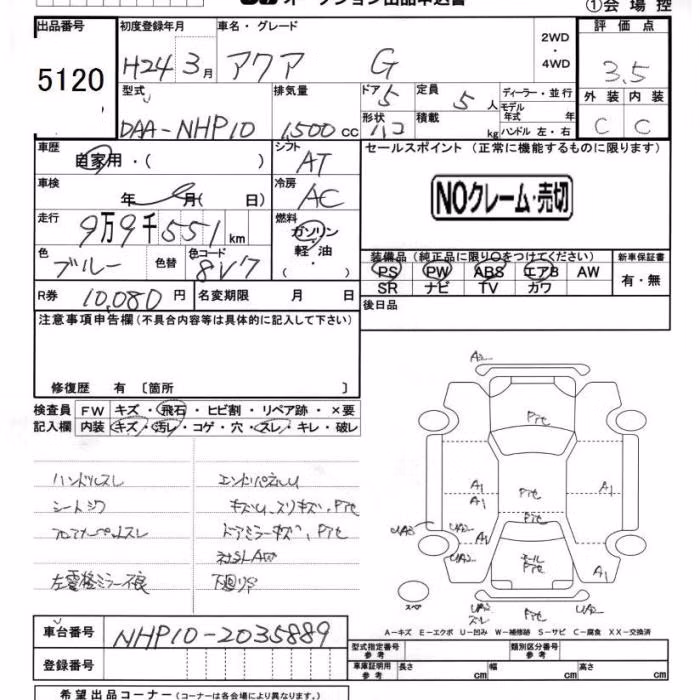 オークション出品申込書
①会場控
出品番号 初度登録年月 車名・グレード 2WD ・ 4WD 評価点
5120 H24 3月 アクア G 3.5
型式 排気量 ドア 5 定員 5人 ディーラー・並行 外装 内装
DAA-NHP10 1,500cc 形状 ハコ 積載 kg モデル年式 年 C C
ハンドル 左・右
車歴 自家用・( ) シフト AT セールスポイント (正常に機能するものに限ります)
車検 年 月( 日) 冷房 AC NOクレーム・売切
走行 9万9千551km 燃料 ガソリン・軽油・( )
色 ブルー 色替 色コード 8V7 装備品(純正品に限り○をつけてください) 新車保証書
PS PW ABS エアB AW 有・無
SR ナビ TV カワ
R券 10,080円 名変期限 月 日 後日品
注意事項申告欄(不具合内容等は具体的に記入して下さい)
修復歴 有 〔箇所 〕
検査員 FW キズ・飛石・ヒビ割・リペア跡・×要
記入欄 内装 キズ・汚レ・コゲ・穴・スレ・キレ・破レ
ハンドルスレ
シートシワ
フロアカーペットスレ
ドアミラーキズ、Pﾃﾋ
下廻りサ
A2
Pﾃﾋ
A1 A1 Pﾃﾋ A1
A1 Pﾃﾋ
UA3 UA2 A1
UA2 Pﾃﾋ A1
スペア UA2 スレ Pﾃﾋ UA2
A−キズ E−エクボ U−凹み W−補修跡 S−サビ C−腐食 XX−交換済
車台番号 NHP10-2035889
登録番号
型式指定番号 参考 類別区分番号 参考
車庫証明用 参考 長さ cm 幅 cm 高さ cm
希望出品コーナー(コーナーは各会場により異なります。)